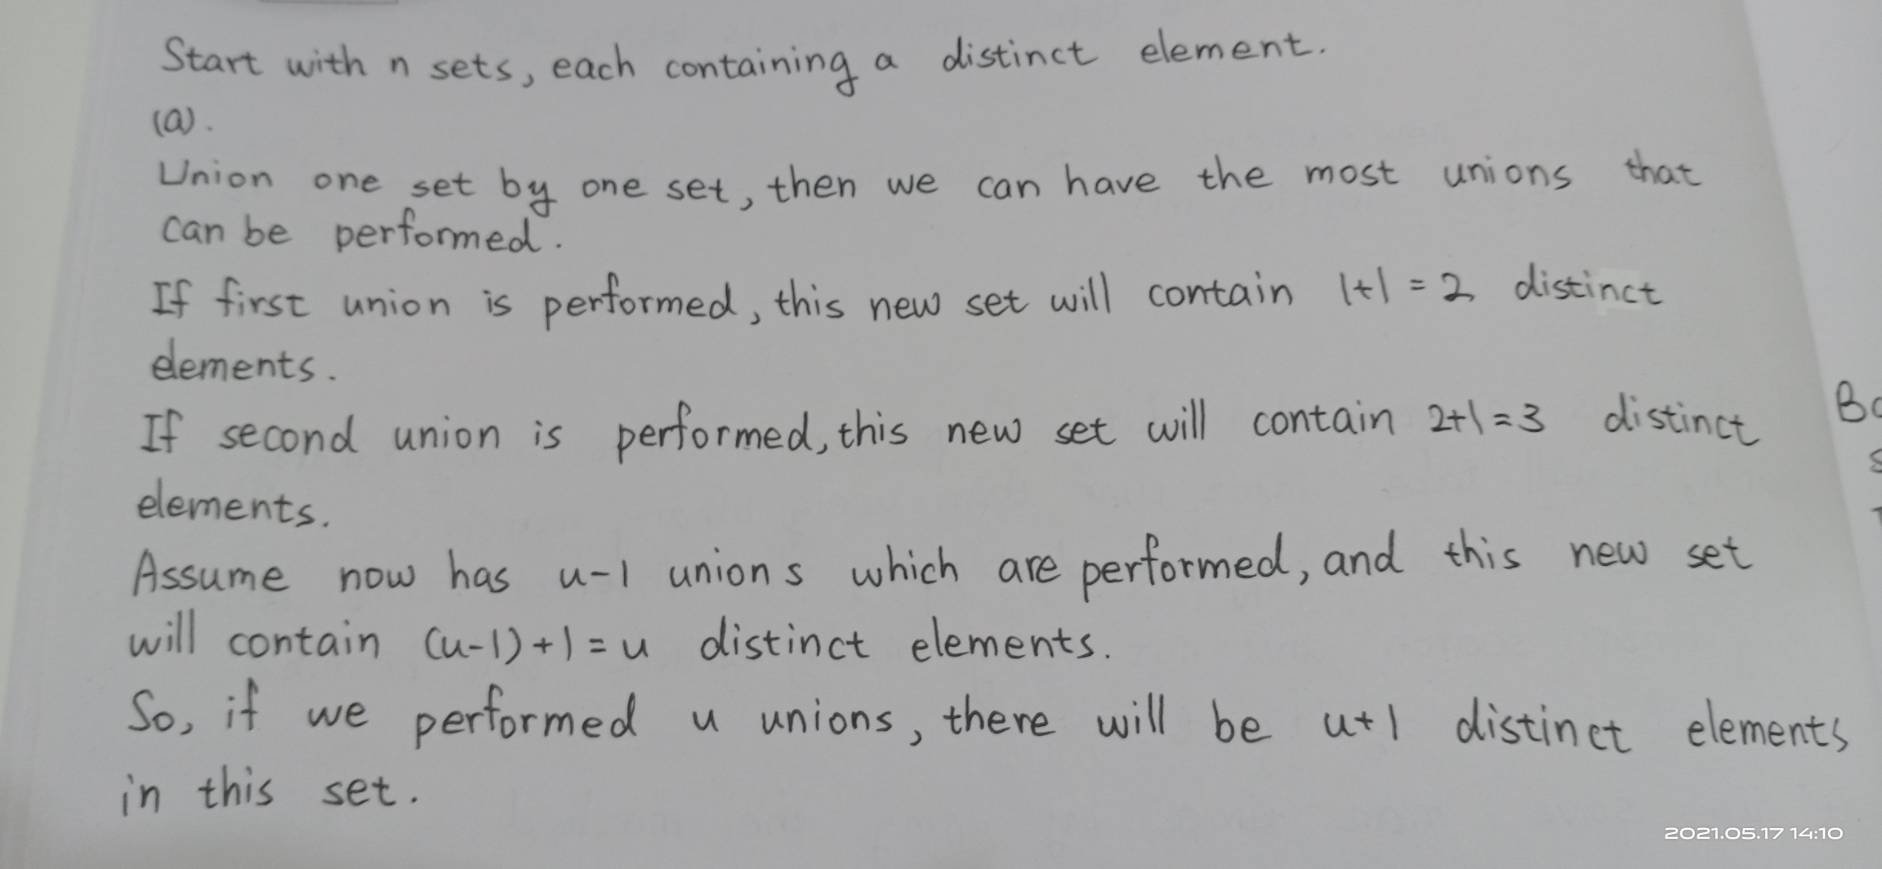 Start with n sets, each containing a distinct element.
(a).
Union one set by one set, then we can have the most unions that
can be performed.
If first union is performed, this new set will contain 1+1=2 distinct
elements.
If second union is performed, this new set will contain 2+1=3 distinct
elements.
Assume now has u-1 unions which are performed, and this new set
will contain (u-1)+1=u distinct elements.
So, if we performed u unions, there will be u+1 distinct elements
in this set.
2021.05.17 14:10